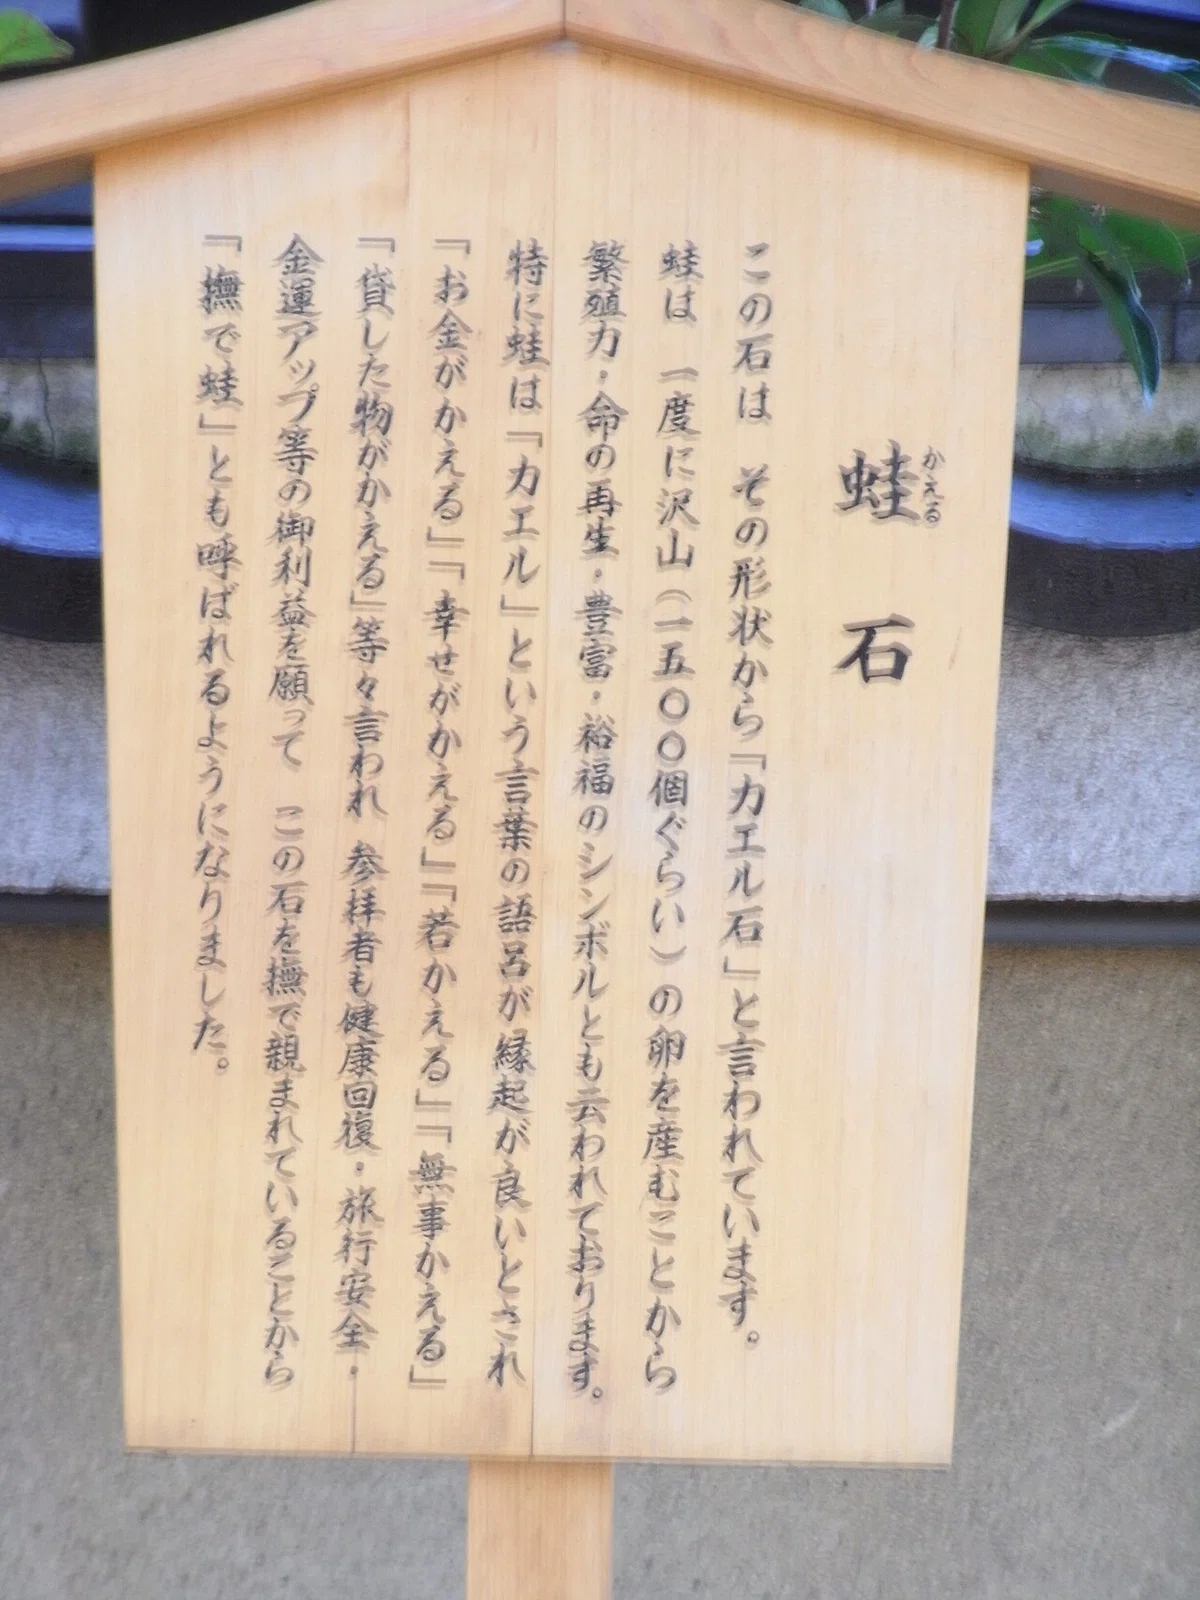 蛙石
かえる
この石は その形状から『カエル石』と言われています。
蛙は 一度に沢山(一五〇〇個ぐらい)の卵を産むことから
繁殖力・命の再生・豊富・裕福のシンボルとも云われております。
特に蛙は『カエル』という言葉の語呂が縁起が良いとされ
『お金がかえる』『幸せがかえる』『若かえる』『無事かえる』
『貸した物がかえる』等々言われ 参拝者も健康回復・旅行安全・
金運アップ等の御利益を願って この石を撫で親まれていることから
『撫で蛙』とも呼ばれるようになりました。